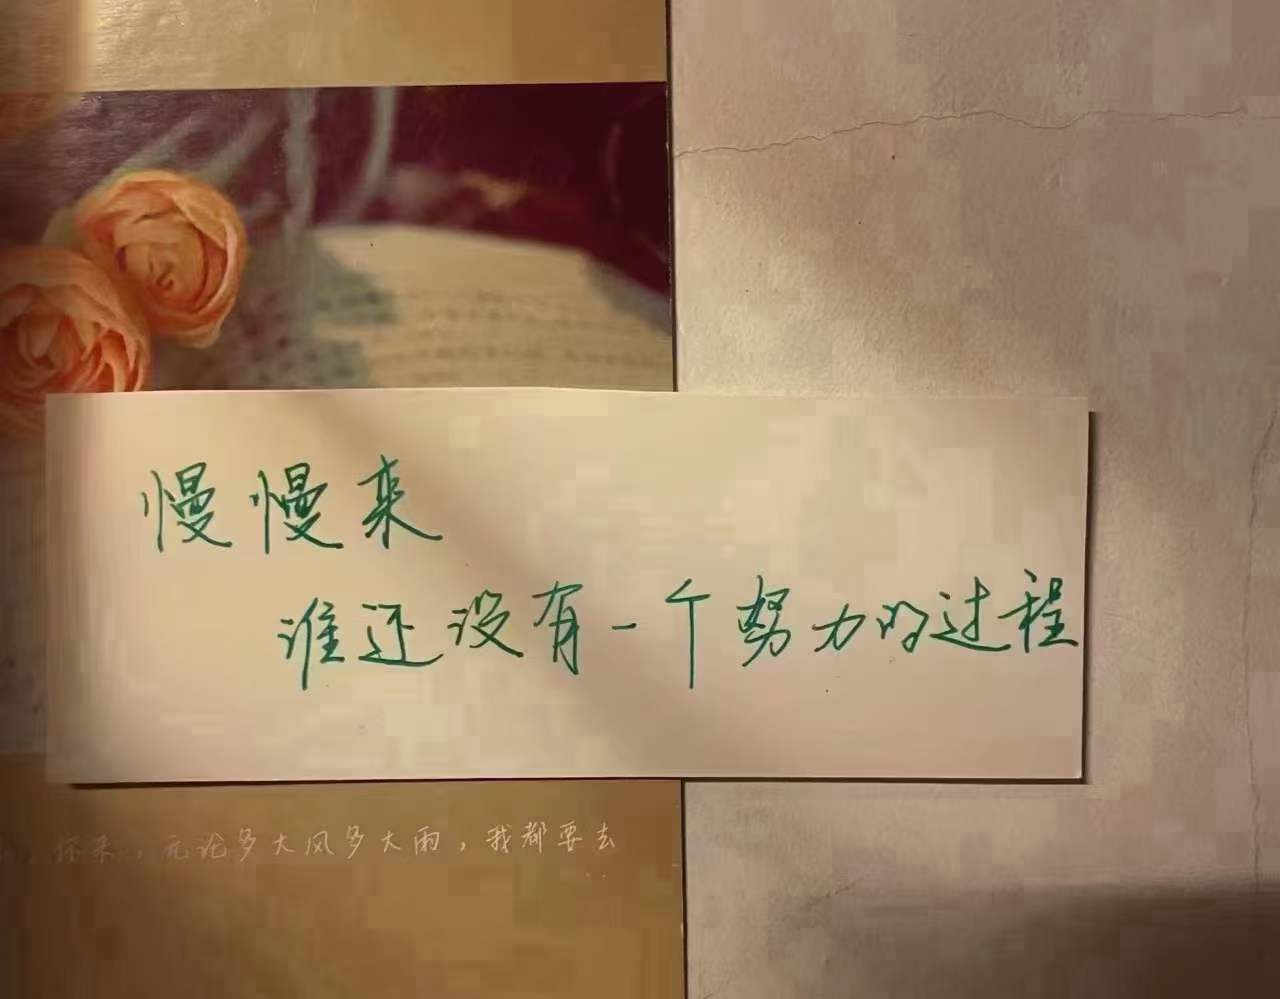 慢慢来
谁还没有一个努力的过程
你来，无论多大风多大雨，我都要去